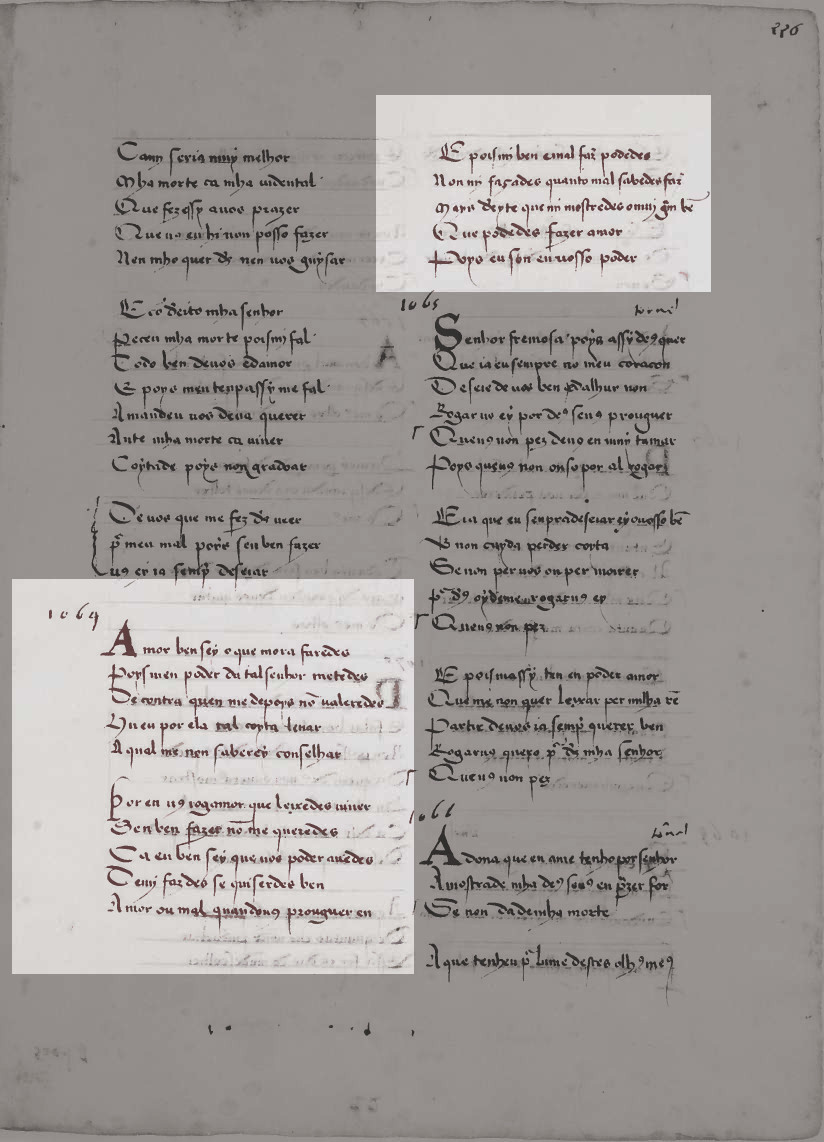 226
Camh seria muy melhor
Mha morte ca mha vida tal
Que fezassy avos prazer
Que vo eu hi non posso fazer
Nen mho quer ds nen vos guysar
E cō deito mha senhor
Receu mha morte poismi fal
Todo ben devos edamor
E poys meu tenpassy me fal
Amandeu vos deva querer
Ante mha morte ca viver
Coytade poys non gradoar
De vos que me fez ds veer
pr meu mal poys seu ben fazer
us er ia semp desejar
1064
Amor ben sey o que mora faredes
Poys men poder da tal senhor metedes
De contra quen me depoys nō valeredes
Hu eu por ela tal coyta levar
A qual me non saberey conselhar
Por en us rogamor que leixedes viver
Senben fazer nō me queredes
Ca eu ben sey que vos poder avedes
Demi fazdes se quiserdes ben
Amor ou mal quandous prouguer en
E poismi ben emal faz podedes
Non mi façades quanto mal sabedes faz
Mays dreyte que mi mostredes omuj gm bē
Que podedes fazer amor
Poys eu son en vosso poder
1065
tornel
Senhor fremosa poys assy deus quer
Que ia eu sempre no meu coraçon
Deseie de vos ben ed alhur non
Rogar vo ey por deus seus prouguer
Queus non pez devo en muy tamar
Poys queus non ouso por al rogar
E ia que eu senpradeseiar ey ovosso bē
E non cuyda perder coyta
Se non per vos ou per morrer
pr ds oydeme rogarus ey
Queus non pez
E poismassy ten en poder amor
Que me non quer leixar per nulha rē
Partir devos ia semp querer ben
Rogarus quero pr ds mha senhor
Queus non pez
1066
tornel
Adona que eu ame tenho por senhor
Amostrade mha deus seus en przer for
Se non dademha morte
A que tenheu pr lume destes olhus meus